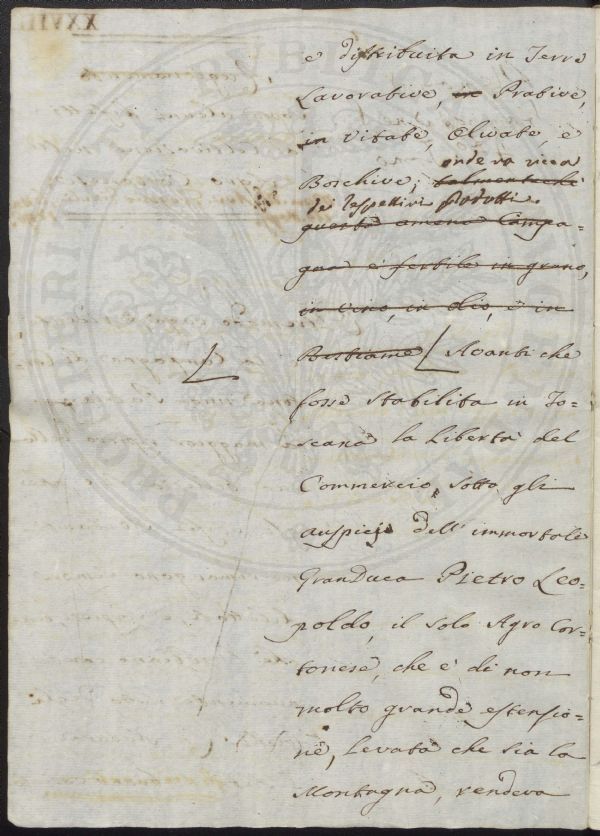 e distribuita in Terre
Lavorative, in Prative,
in vitate, Olivate, e
onde va ricca
Boschive; talmentechè
de respettivi prodotti.
questa amena Campa-
gna è fertile in grano,
in vino, in olio, e in
Bestiame Avanti che
fosse stabilita in To-
scana la Libertà del
Commercio, sotto gli
auspicj dell'immortale
Granduca Pietro Leo-
poldo, il solo Agro Cor-
tonese, che è di non
molto grande estensio-
ne, levata che sia la
Montagna, vendeva